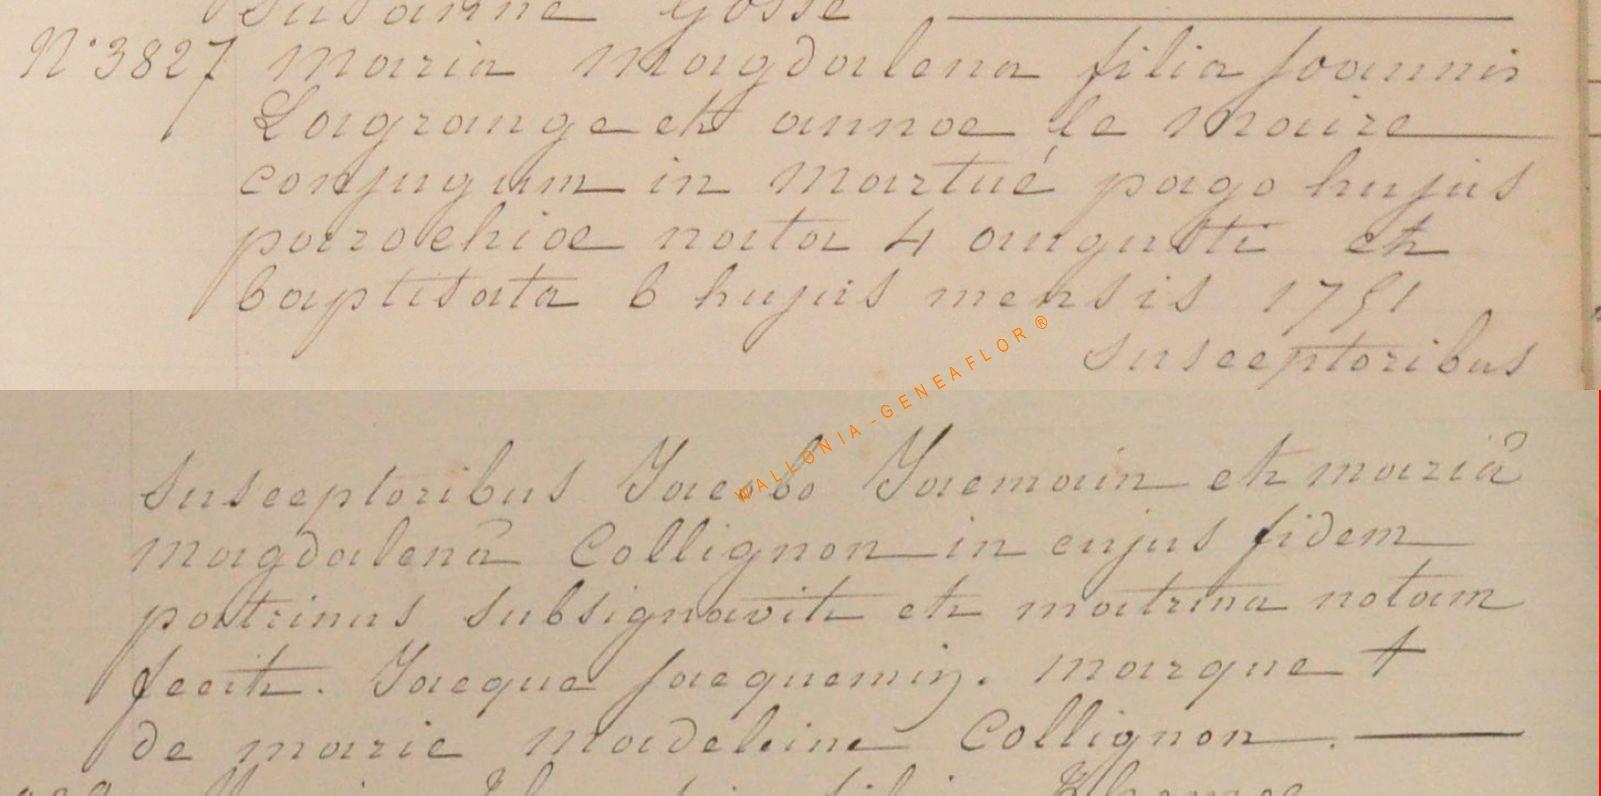 Susanne Gosse
N° 3827 Maria Magdalena filia Joannis
Lagrange et annae le Maire
conjugum in Martué pago hujus
parochiae nata 4 augusti et
baptisata 6 hujus mensis 1751
Susceptoribus
WALLONIA-GENEAFLOR ®
Susceptoribus Jacobo Jacmain et mariâ
Magdalenâ Collignon in cujus fidem
patrinus subsignavit et matrina notam
fecit. Jacque jacquemin. marque +
de marie Madeleine Collignon.